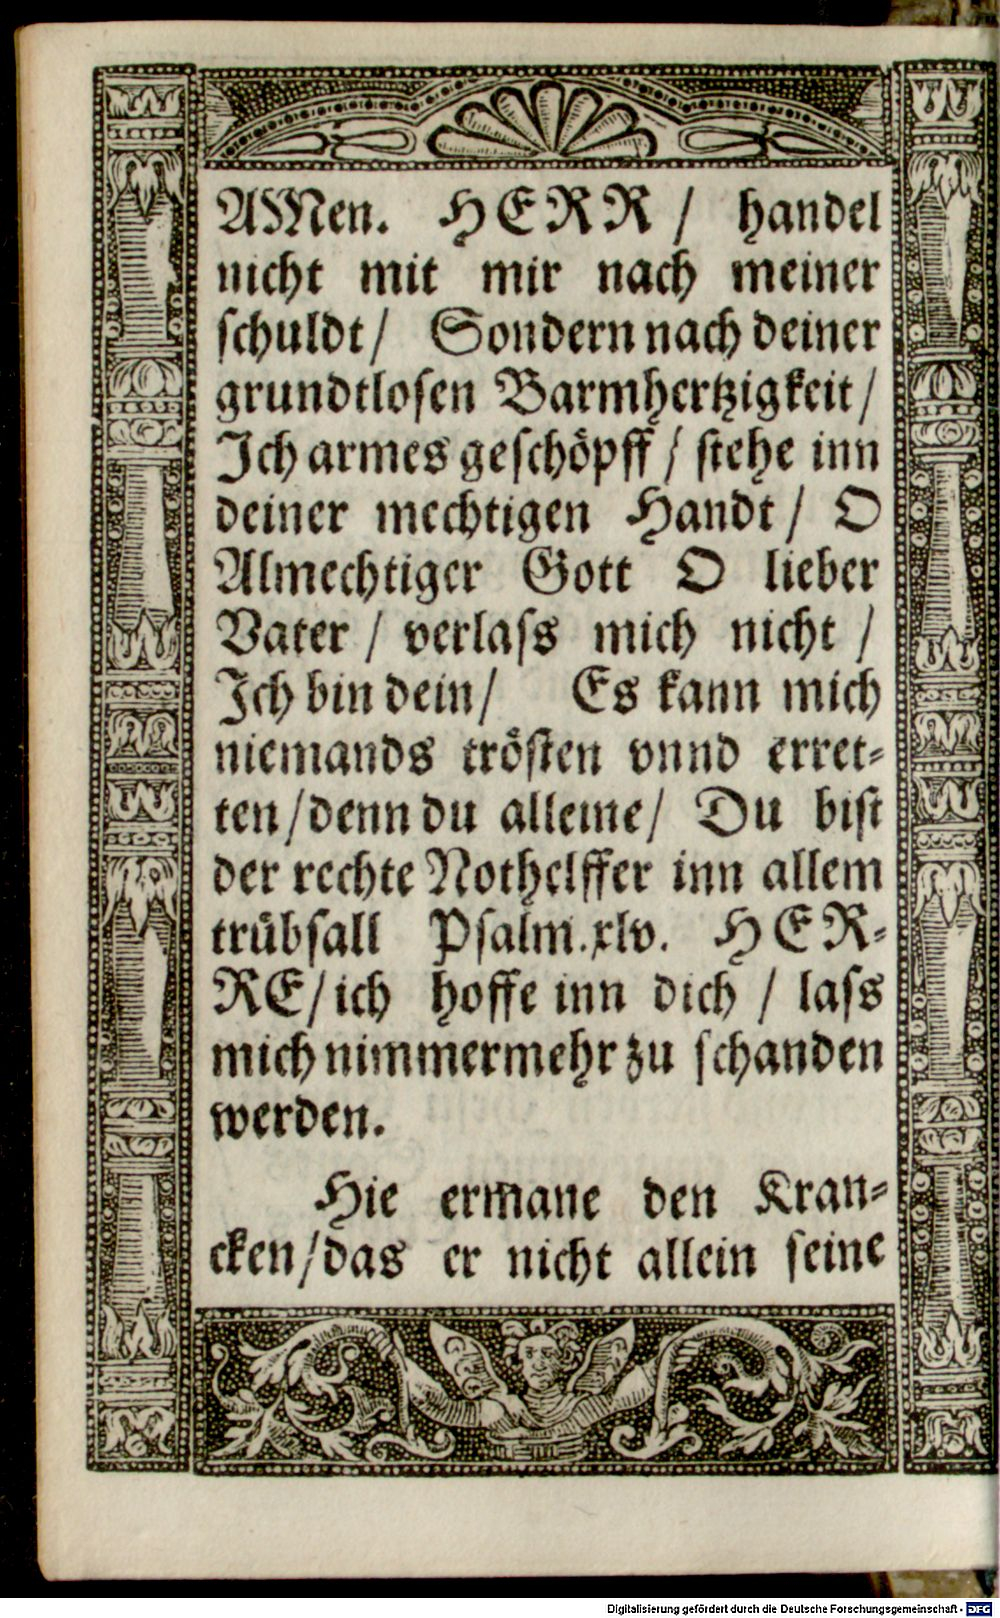 AMen. HERR / handel
nicht mit mir nach meiner
schuldt / Sondern nach deiner
grundtlosen Barmhertzigkeit /
Ich armes geschöpff / stehe inn
deiner mechtigen Handt / O
Almechtiger Gott O lieber
Vater / verlass mich nicht /
Ich bin dein / Es kann mich
niemands trösten vnnd erret-
ten / denn du alleine / Du bist
der rechte Nothelffer inn allem
trübsall Psalm. xlv. HER-
RE / ich hoffe inn dich / lass
mich nimmermehr zu schanden
werden.
Hie ermane den Kran-
cken / das er nicht allein seine
Digitalisierung gefördert durch die Deutsche Forschungsgemeinschaft - DFG